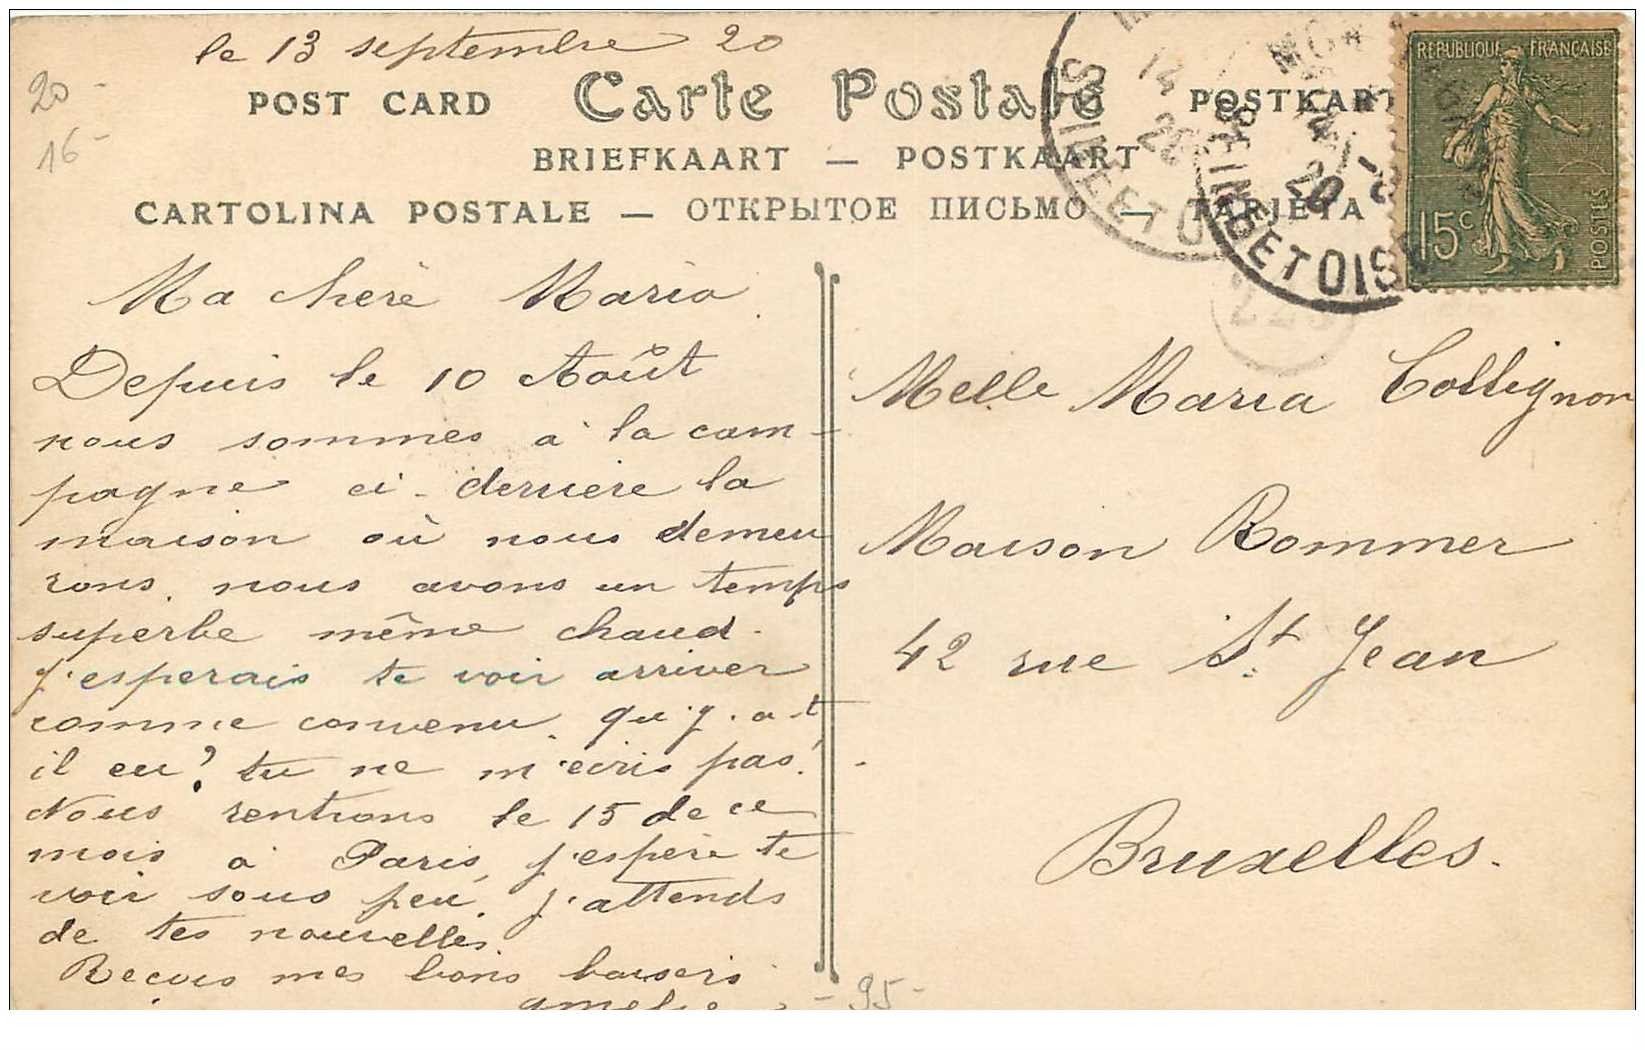 le 13 septembre 20
20 -
16 -
POST CARD Carte Postale POSTKART
BRIEFKAART — POSTKAART
CARTOLINA POSTALE — ОТКРЫТОЕ ПИСЬМО — TARJETA
REPUBLIQUE FRANÇAISE
15c
POSTES
14
20
SEINE ET O
20
SEINE ET OISE
Ma chère Maria
Depuis le 10 Août
nous sommes à la cam-
pagne ci-derriere la
maison où nous demeu
rons. nous avons un temps
superbe même chaud.
j'esperais te voir arriver
comme convenu. qu'y.a-t
il eu? tu ne m'ecris pas.
Nous rentrons le 15 de ce
mois à Paris, j'espère te
voir sous peu. j'attends
de tes nouvelles.
Recois mes bons baisers
Melle Maria Collignon
Maison Rommer
42 rue St Jean
Bruxelles.
- 95 -